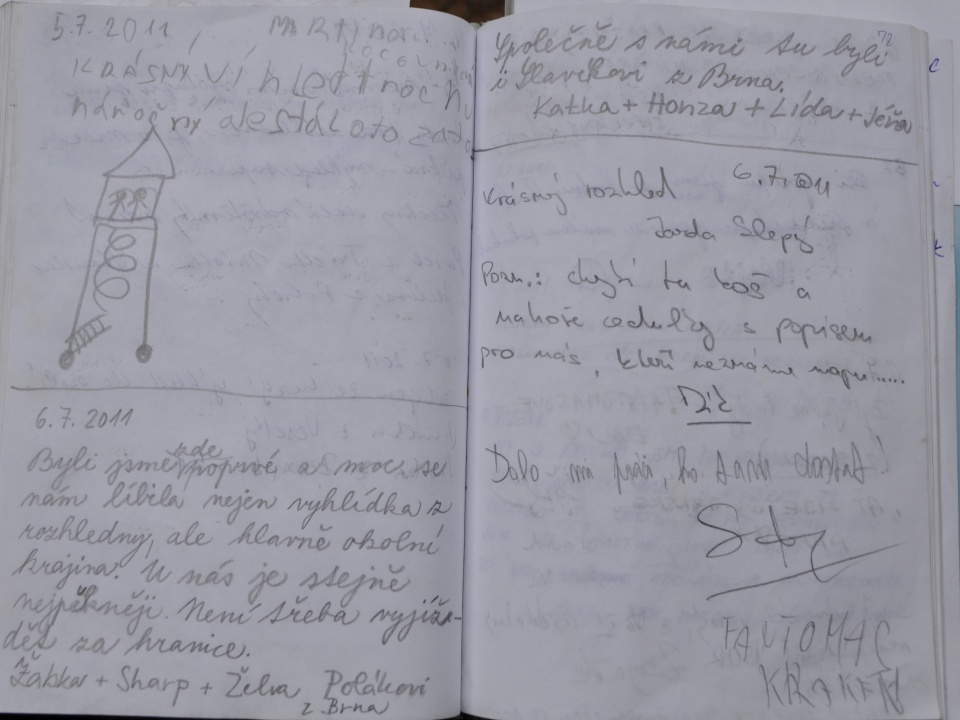 5.7.2011
KRÁSNÝ VÝhled moc
náročný ale stálo to za to
6.7.2011
Byli jsme zde poprvé a moc se
nám líbila nejen vyhlídka z
rozhledny, ale hlavně okolní
krajina. U nás je stejně
nejpěkněji. Není třeba vyjíž-
dět za hranice.
Žabka + Sharp + Želva Polákovi
z Brna
72
Společně s námi tu byli
i Slavíkovi z Brna.
Katka + Honza + Lída + Jéňa
6.7.2011
Krásný rozhled
Jarda Slepý
Pozn.: chybí tu koš a
nahoře cedulky s popisem
pro nás, kteří neznáme napiš.....
Dík
Dalo mi práci, ho tam dostat!
FANTOMAC
KRAKEN